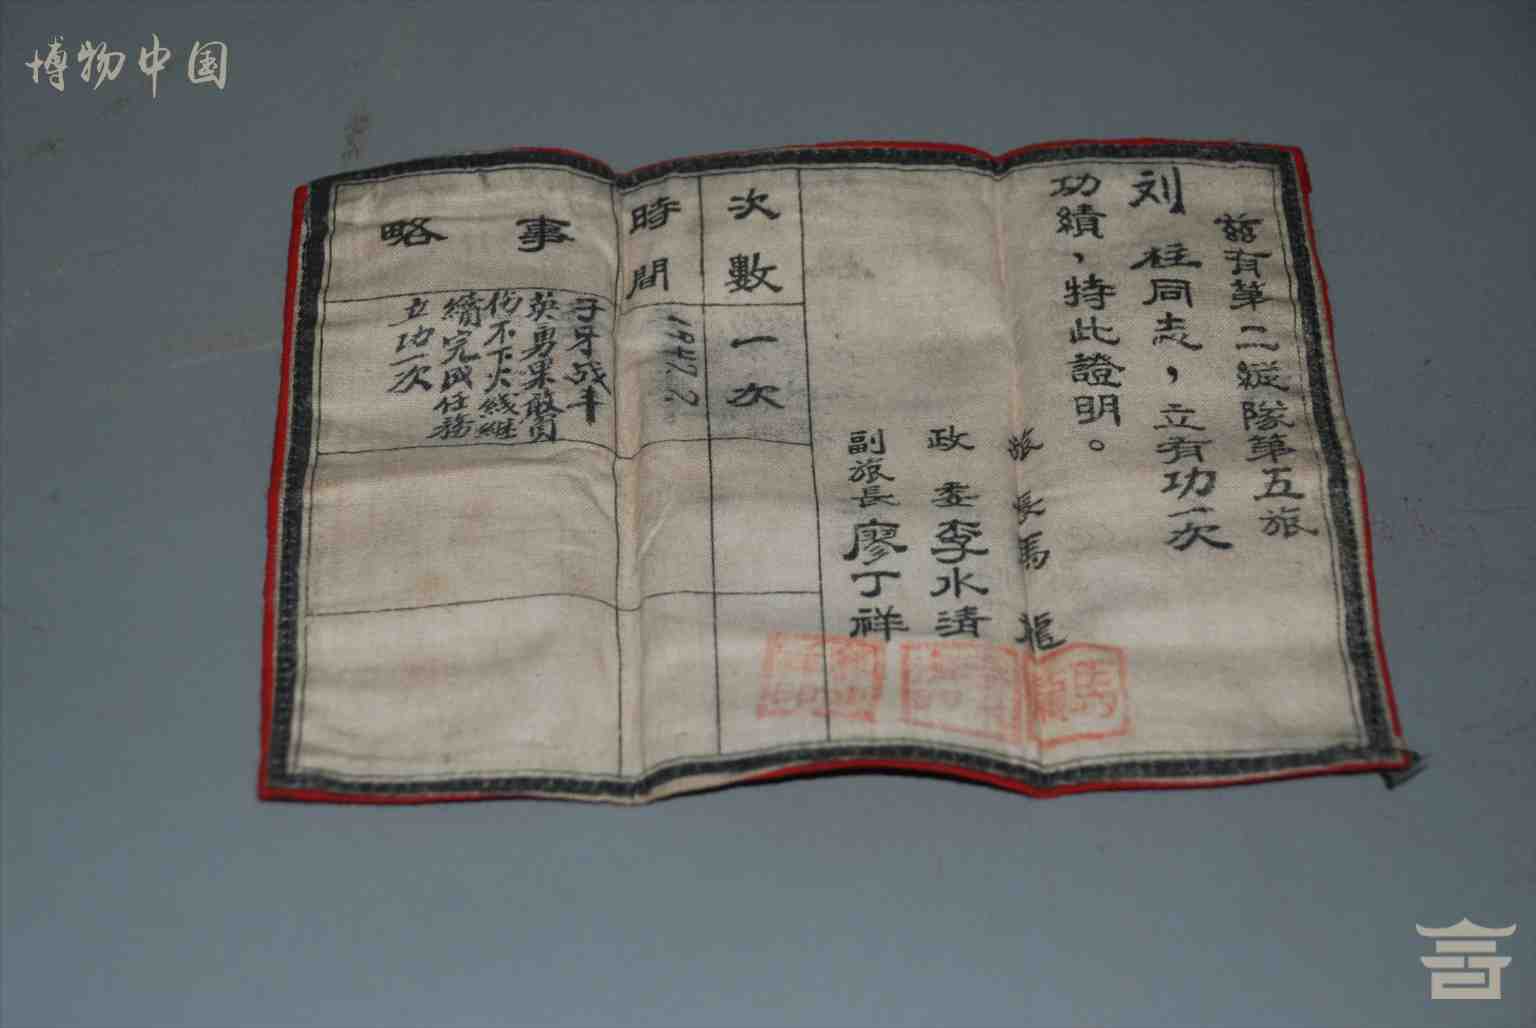 博物中国
兹有第二縱隊第五旅
刘柱同志，立有功一次
功績，特此證明。
旅長馬龍
政委李水清
副旅長廖丁祥
次數
一次
時間
1947.2
事略
子牙战斗
英勇果敢負
伤不下火线継
續完成任務
立功一次